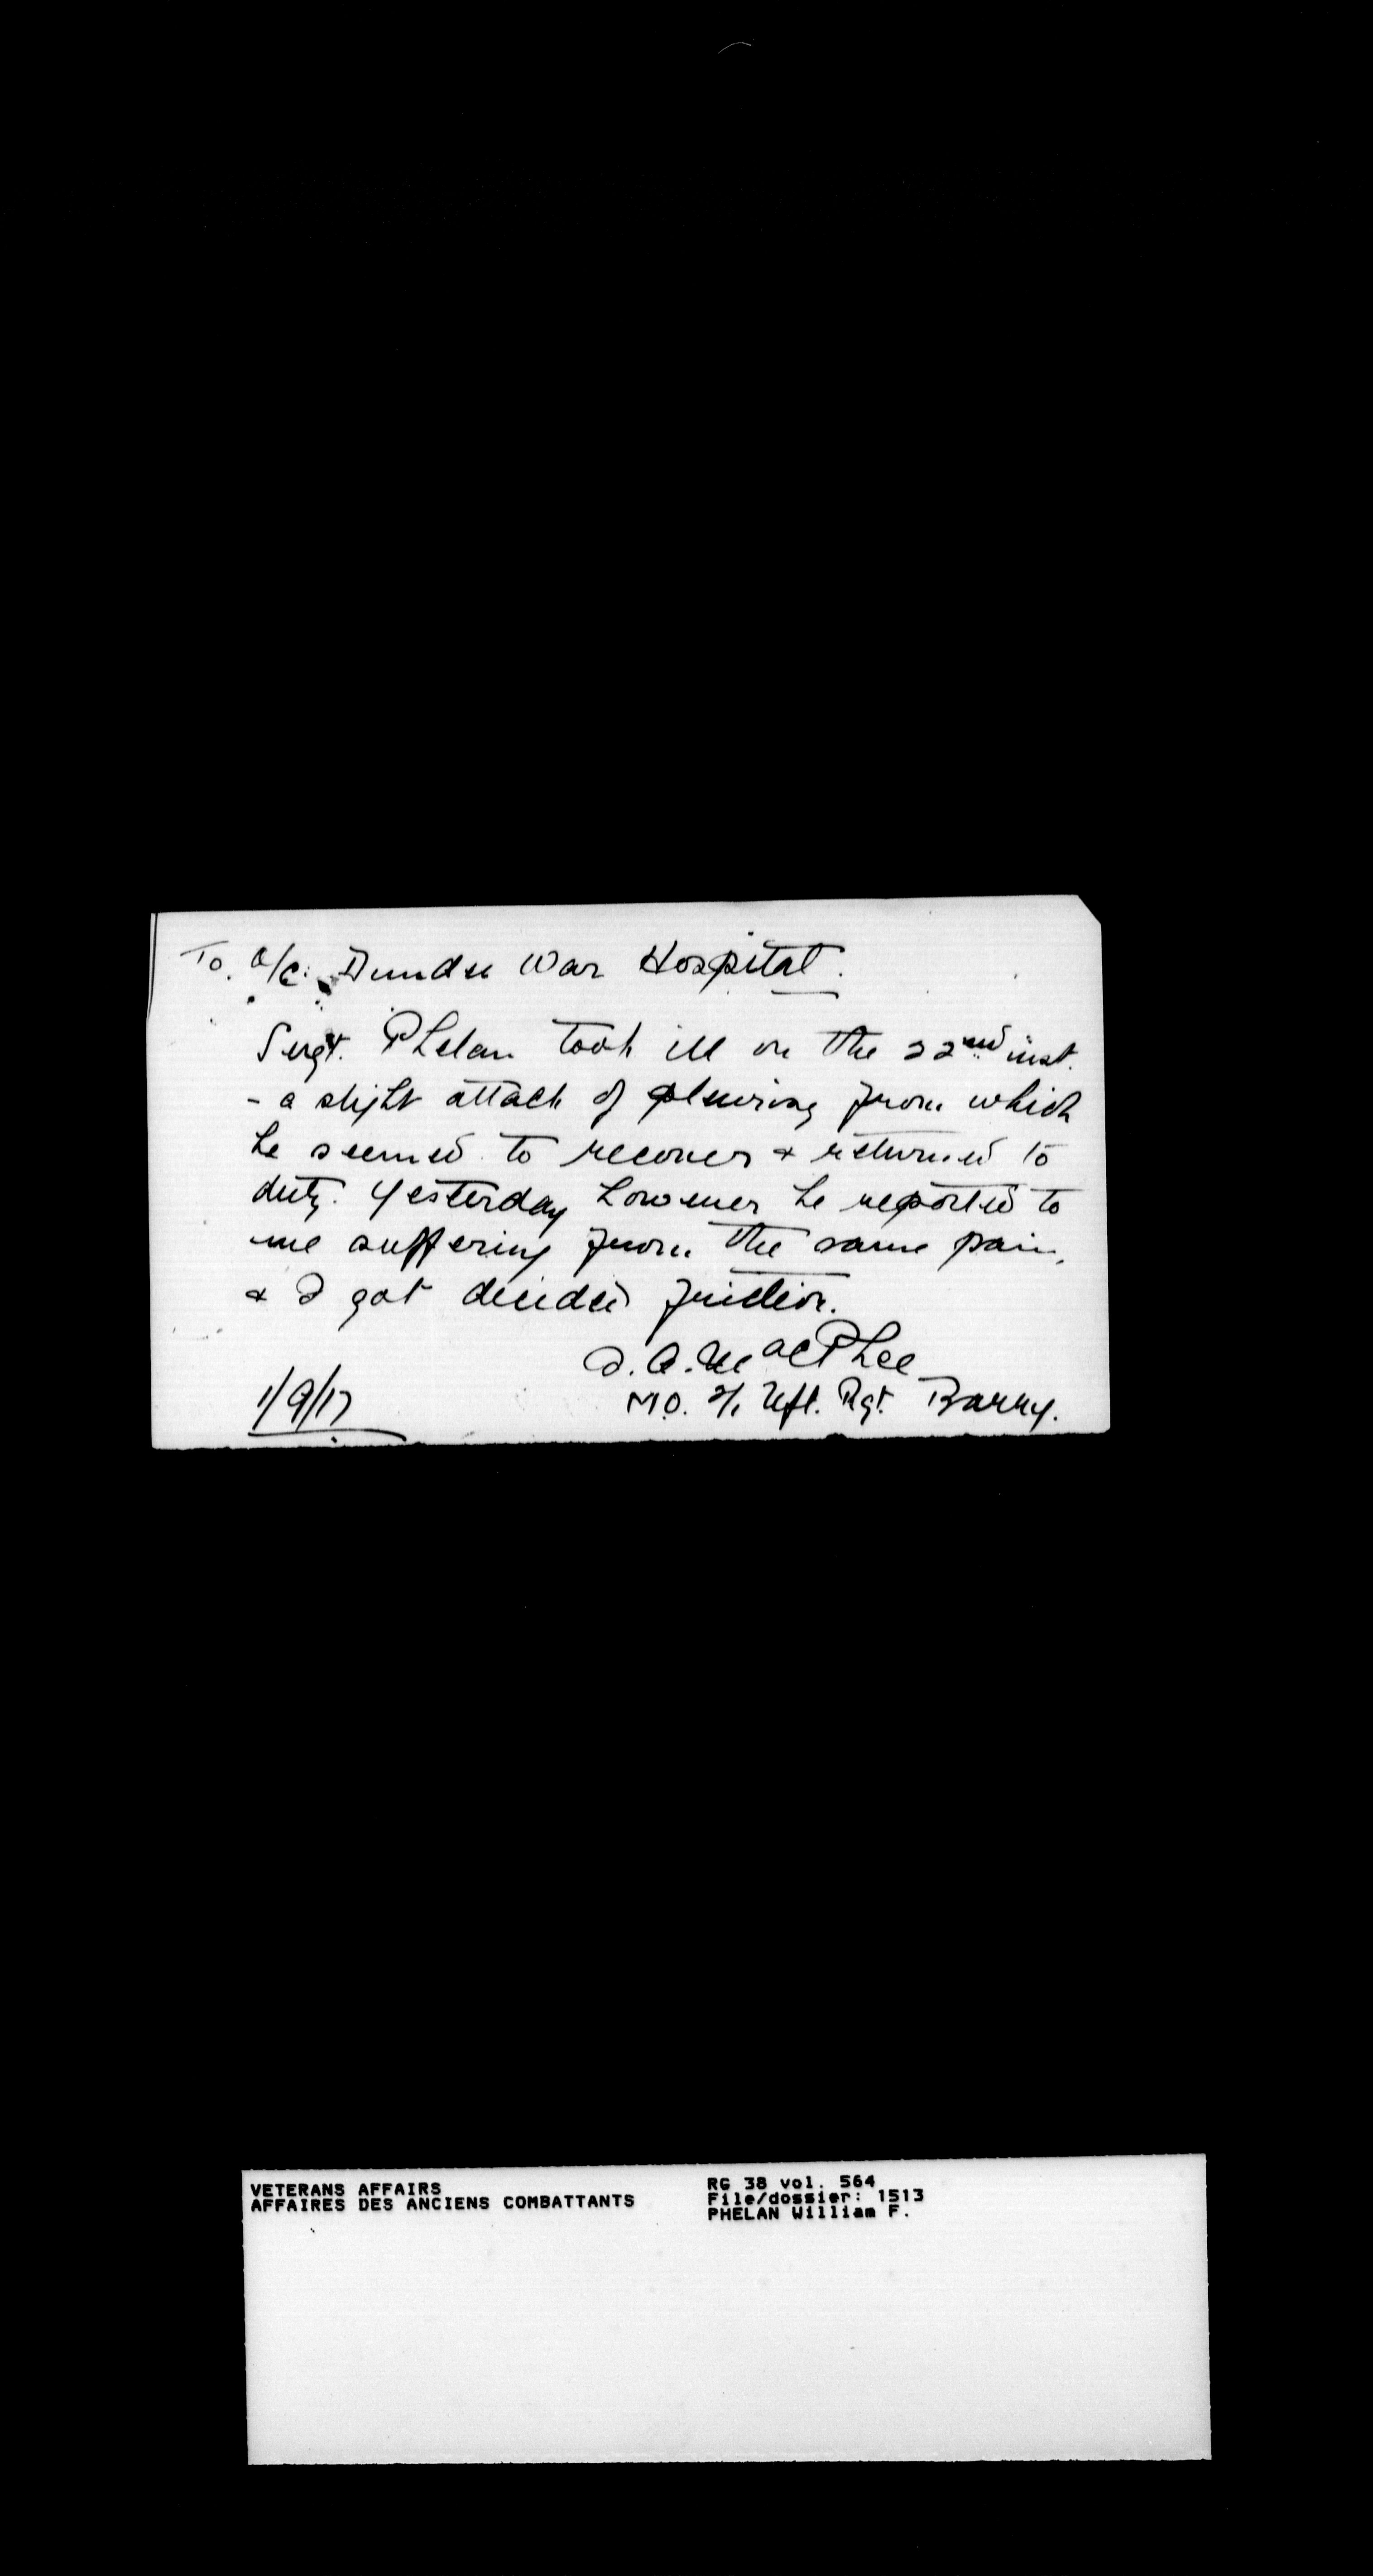 To. O/C. Dundee War Hospital.
Sergt. Phelan took ill on the 22nd inst.
- a slight attack of pleurisy from which
he seemed to recover & returned to
duty. Yesterday however he reported to
me suffering from the same pain,
& I got decided friction.
D. A. MacPhee
M.O. 2/1 Nfl. Rgt. Barry.
1/9/17
VETERANS AFFAIRS
AFFAIRES DES ANCIENS COMBATTANTS
RG 38 vol. 564
File/dossier: 1513
PHELAN William F.